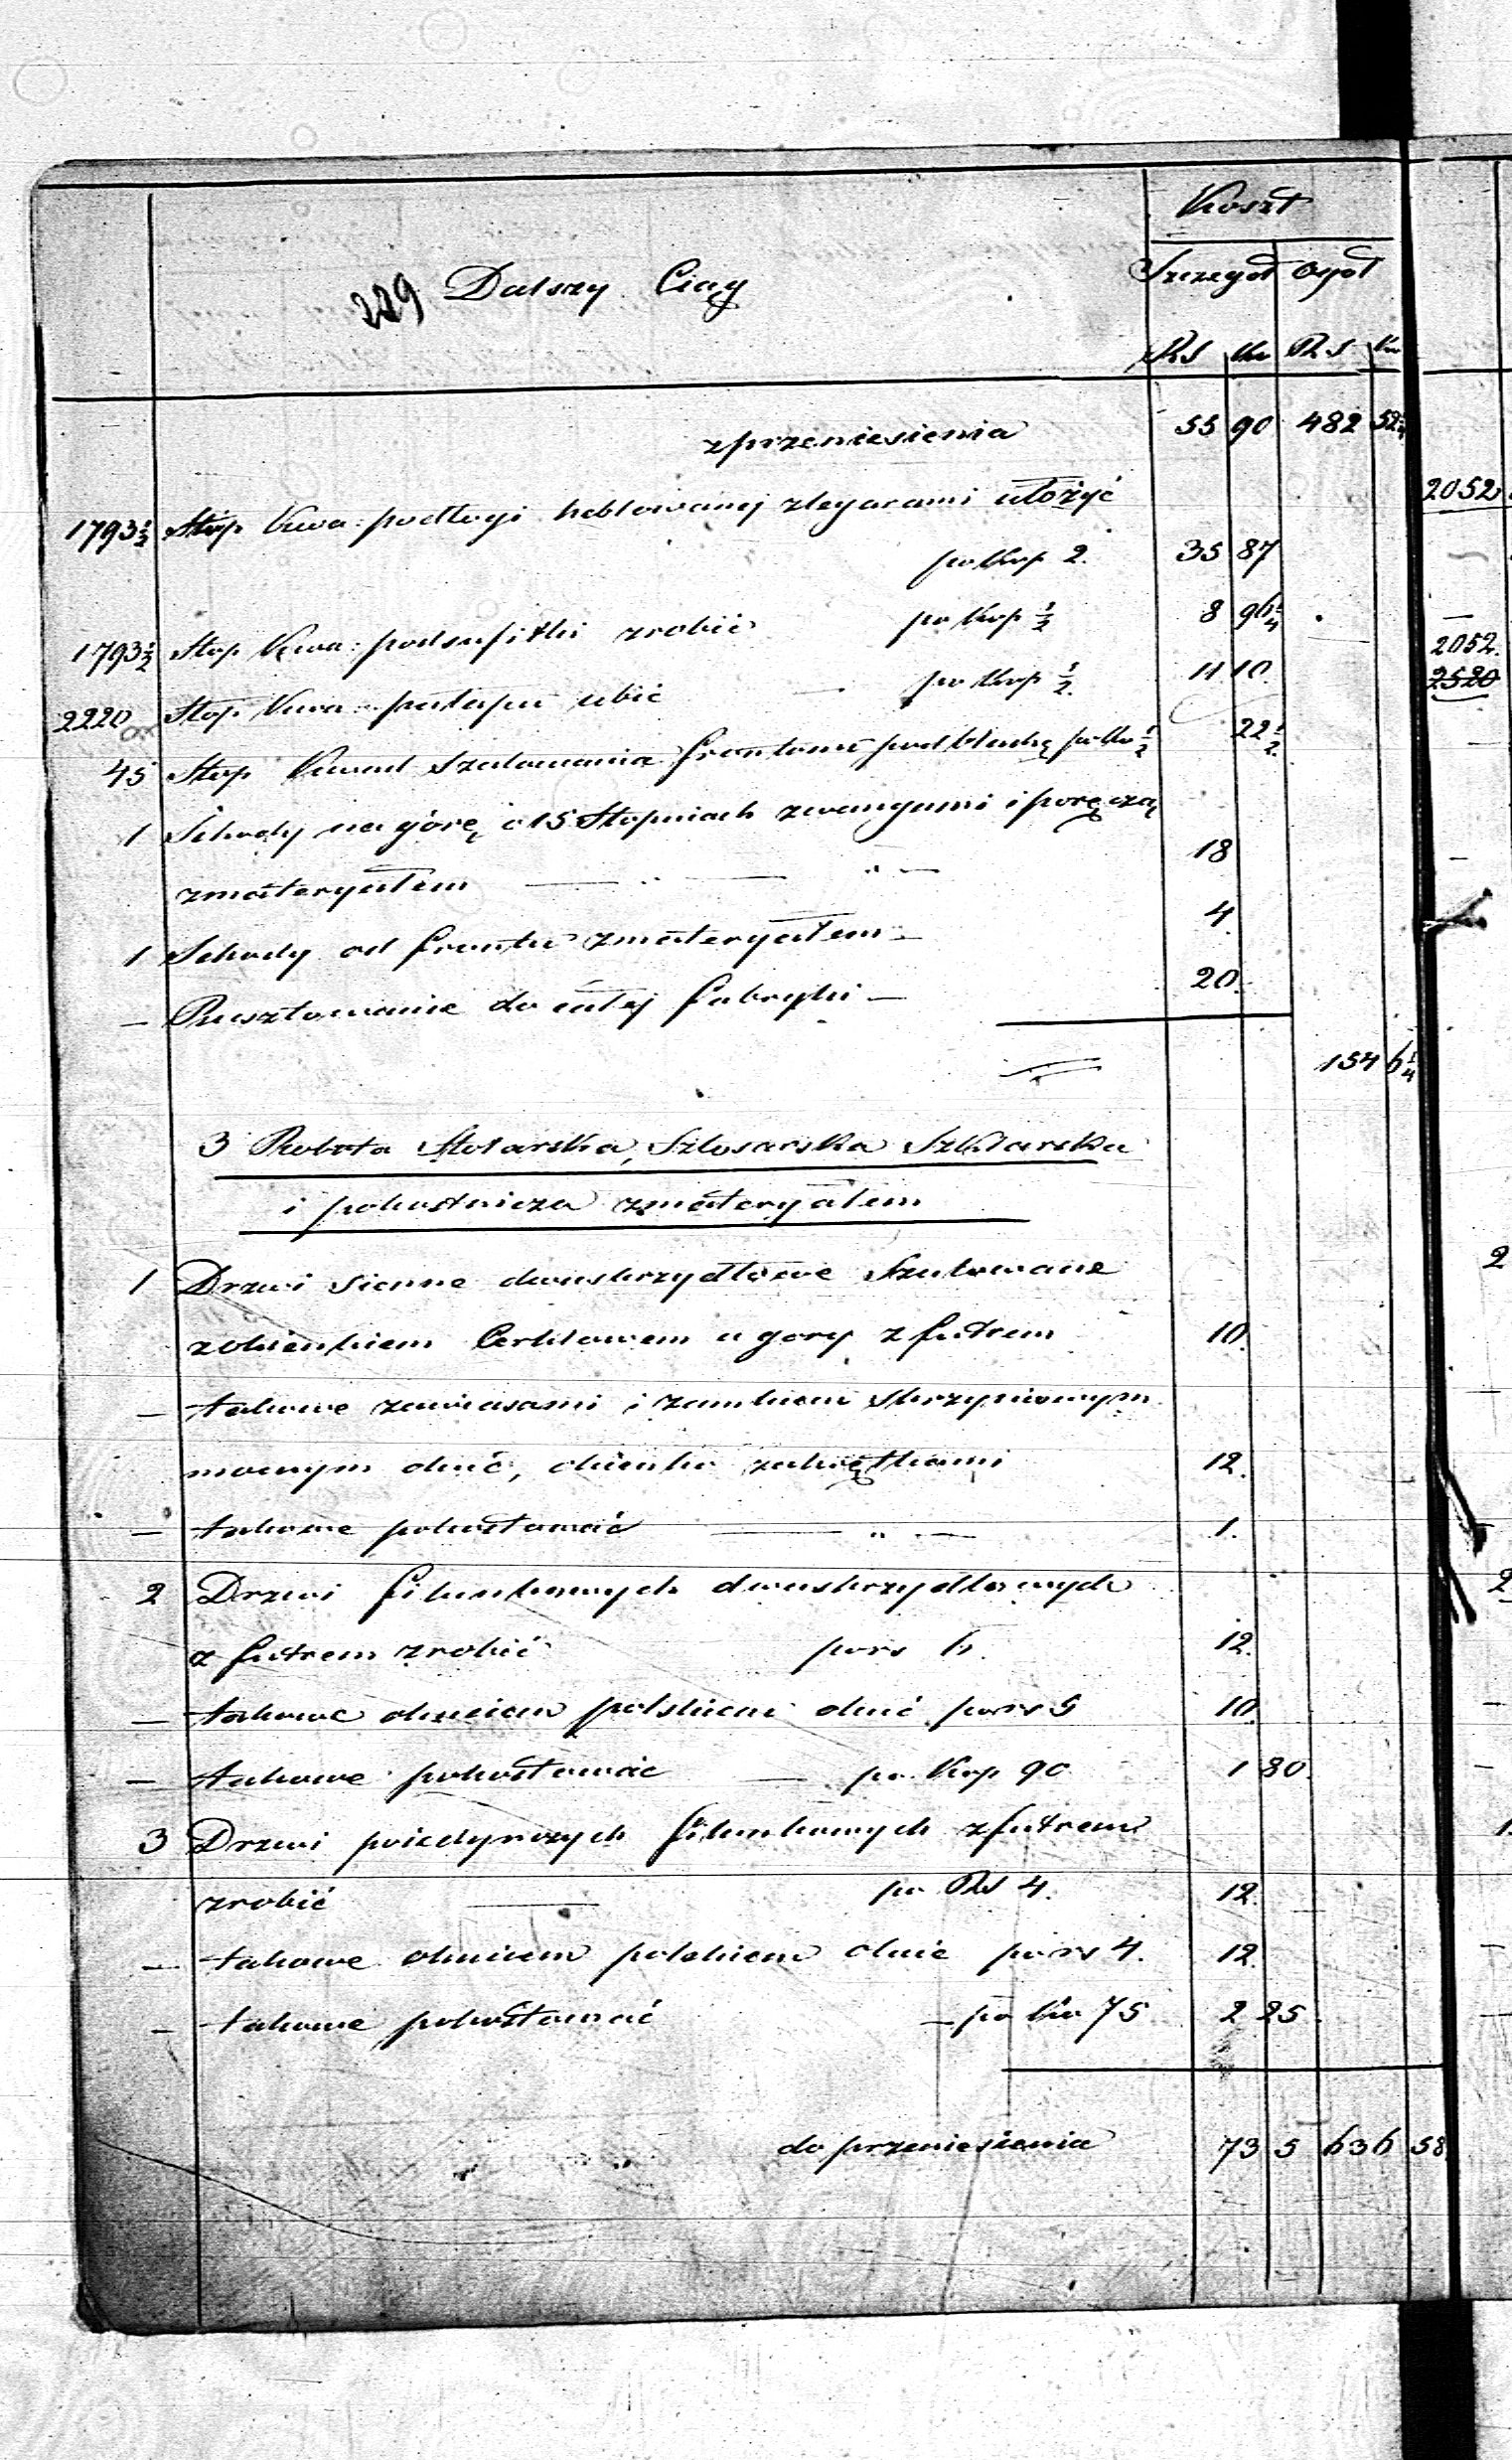 Koszt
229 Dalszy Ciąg Szczegół Ogół
RS Ko RS Ko
z przeniesienia 55 90 482 52 1/4
1793 1/2 Stóp Kwa: podłogi heblowanej zlegarami ułożyć
po Kop 2. 35 87
1793 1/2 Stop Kwa: podsufitki zrobić po Kop 1/2 8 96 1/4
2220 Stop Kwa: pułapu ubić — po Kop 1/2. 11 10
45 Stop Kwad Szalowania frontonu pod blachę po Ko 1/2 22 1/2
1 Schody na górę o 15 Stopniach zwangami i poręczą
zmateryałem — " — " — 18
1 Schody od frontu zmateryałem — 4
— Rusztowanie do całej fabryki — 20
154 6 1/4
3 Robota Stolarska, Szlosarska Szklarska
i pokostnicza zmateryałem
1 Drzwi sienne dwuskrzydłowe Szalowane
zokienkiem u gory z futrem 10
— takowe zawiasami i zamkiem skrzyniowym
mocnym okuć, okienko zakrętkami 12.
— takowe pokostować — " — 1.
2 Drzwi filunkowych dwuskrzydłowych
z futrem zrobić po rs 6. 12
— takowe okuciem polskiem okuć po rs 5 10
— takowe pokostować — po Kop 90 1 80
3 Drzwi poiedynczych filunkowych zfutrem
zrobić — po RS 4. 12.
— takowe okuciem polskiem okuć po rs 4. 12
— takowe pokostować — po Ko 75 2 25
do przeniesienia 73 5 636 58
2052
2052.
2520
2
2